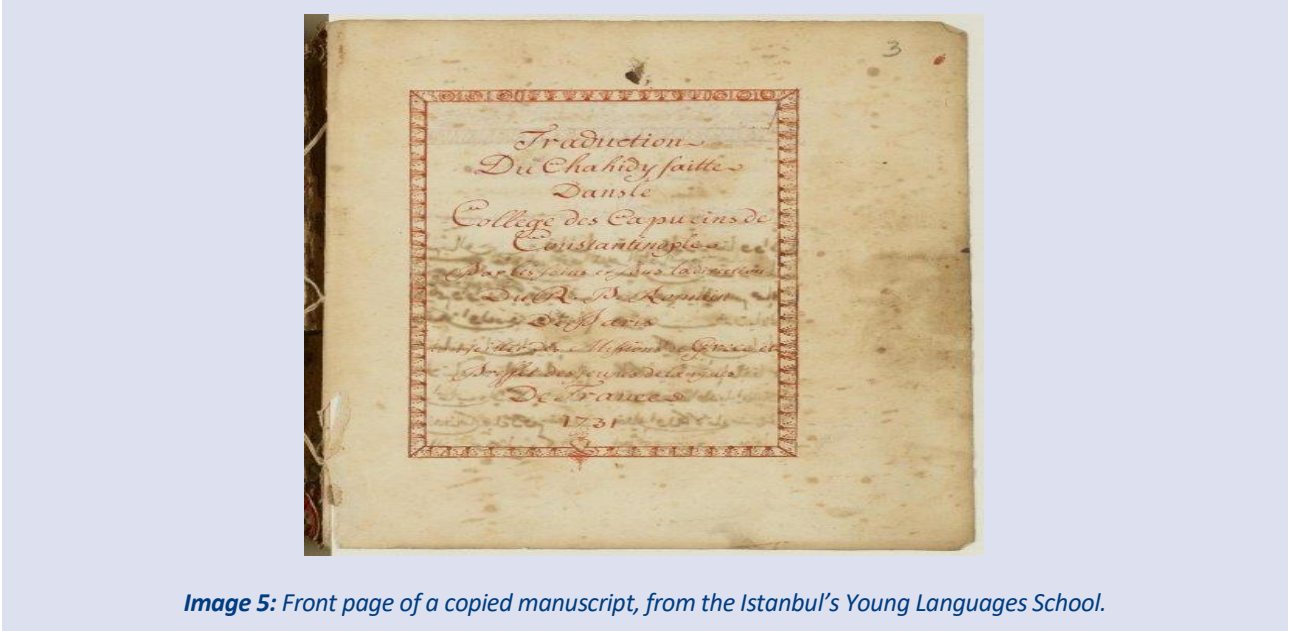 3
Traduction
Du Chahidy faitte
Dans le
Collège des Capucins de
Constantinople
Par les soins et sous la direction
Du R. P. Romain
De Paris
des Missions de Grece et
Préffet des jeunes de langue
De France
1731
Image 5: Front page of a copied manuscript, from the Istanbul's Young Languages School.